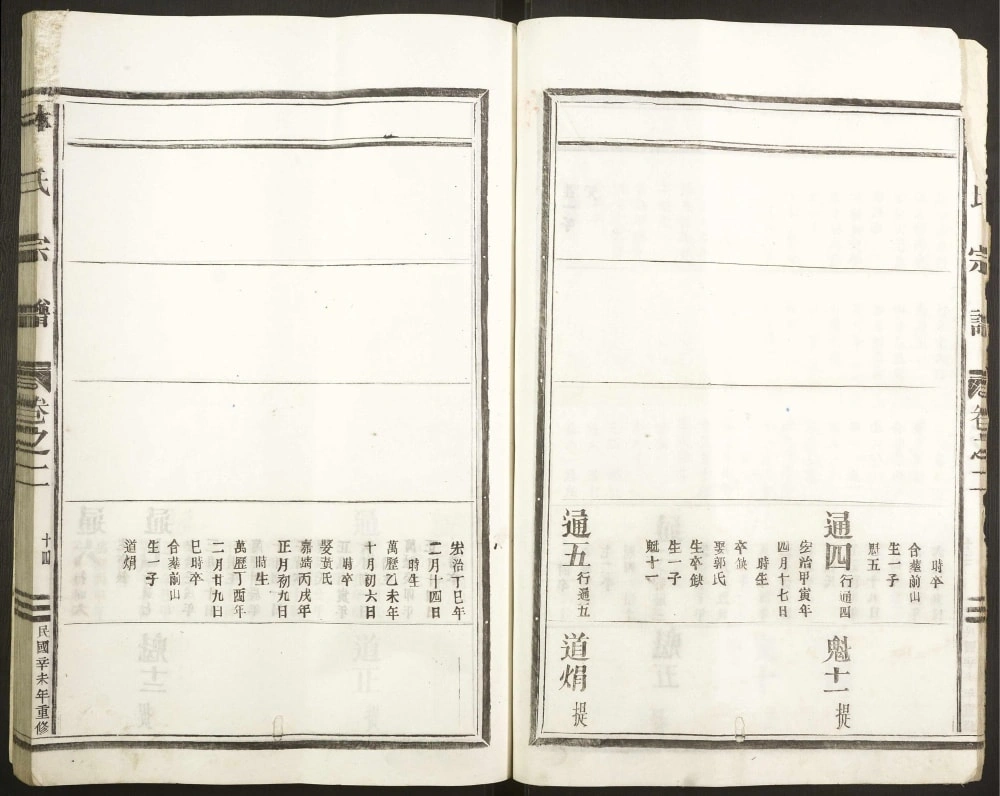 氏宗譜
卷之二
時卒
合墓前山
生一子
魁五
通四
行通四
宏治甲寅年
四月十七日
時生
卒缺
娶郭氏
生卒缺
生一子
魁十一
通五
行通五
魁十一
提
道焆
提
宏治丁巳年
二月十四日
時生
萬歷乙未年
十月初六日
時卒
娶黃氏
嘉靖丙戌年
正月初九日
時生
萬歷丁酉年
二月廿九日
巳時卒
合墓前山
生一子
道焆
林氏宗譜
卷之二
十四
民國辛未年重修